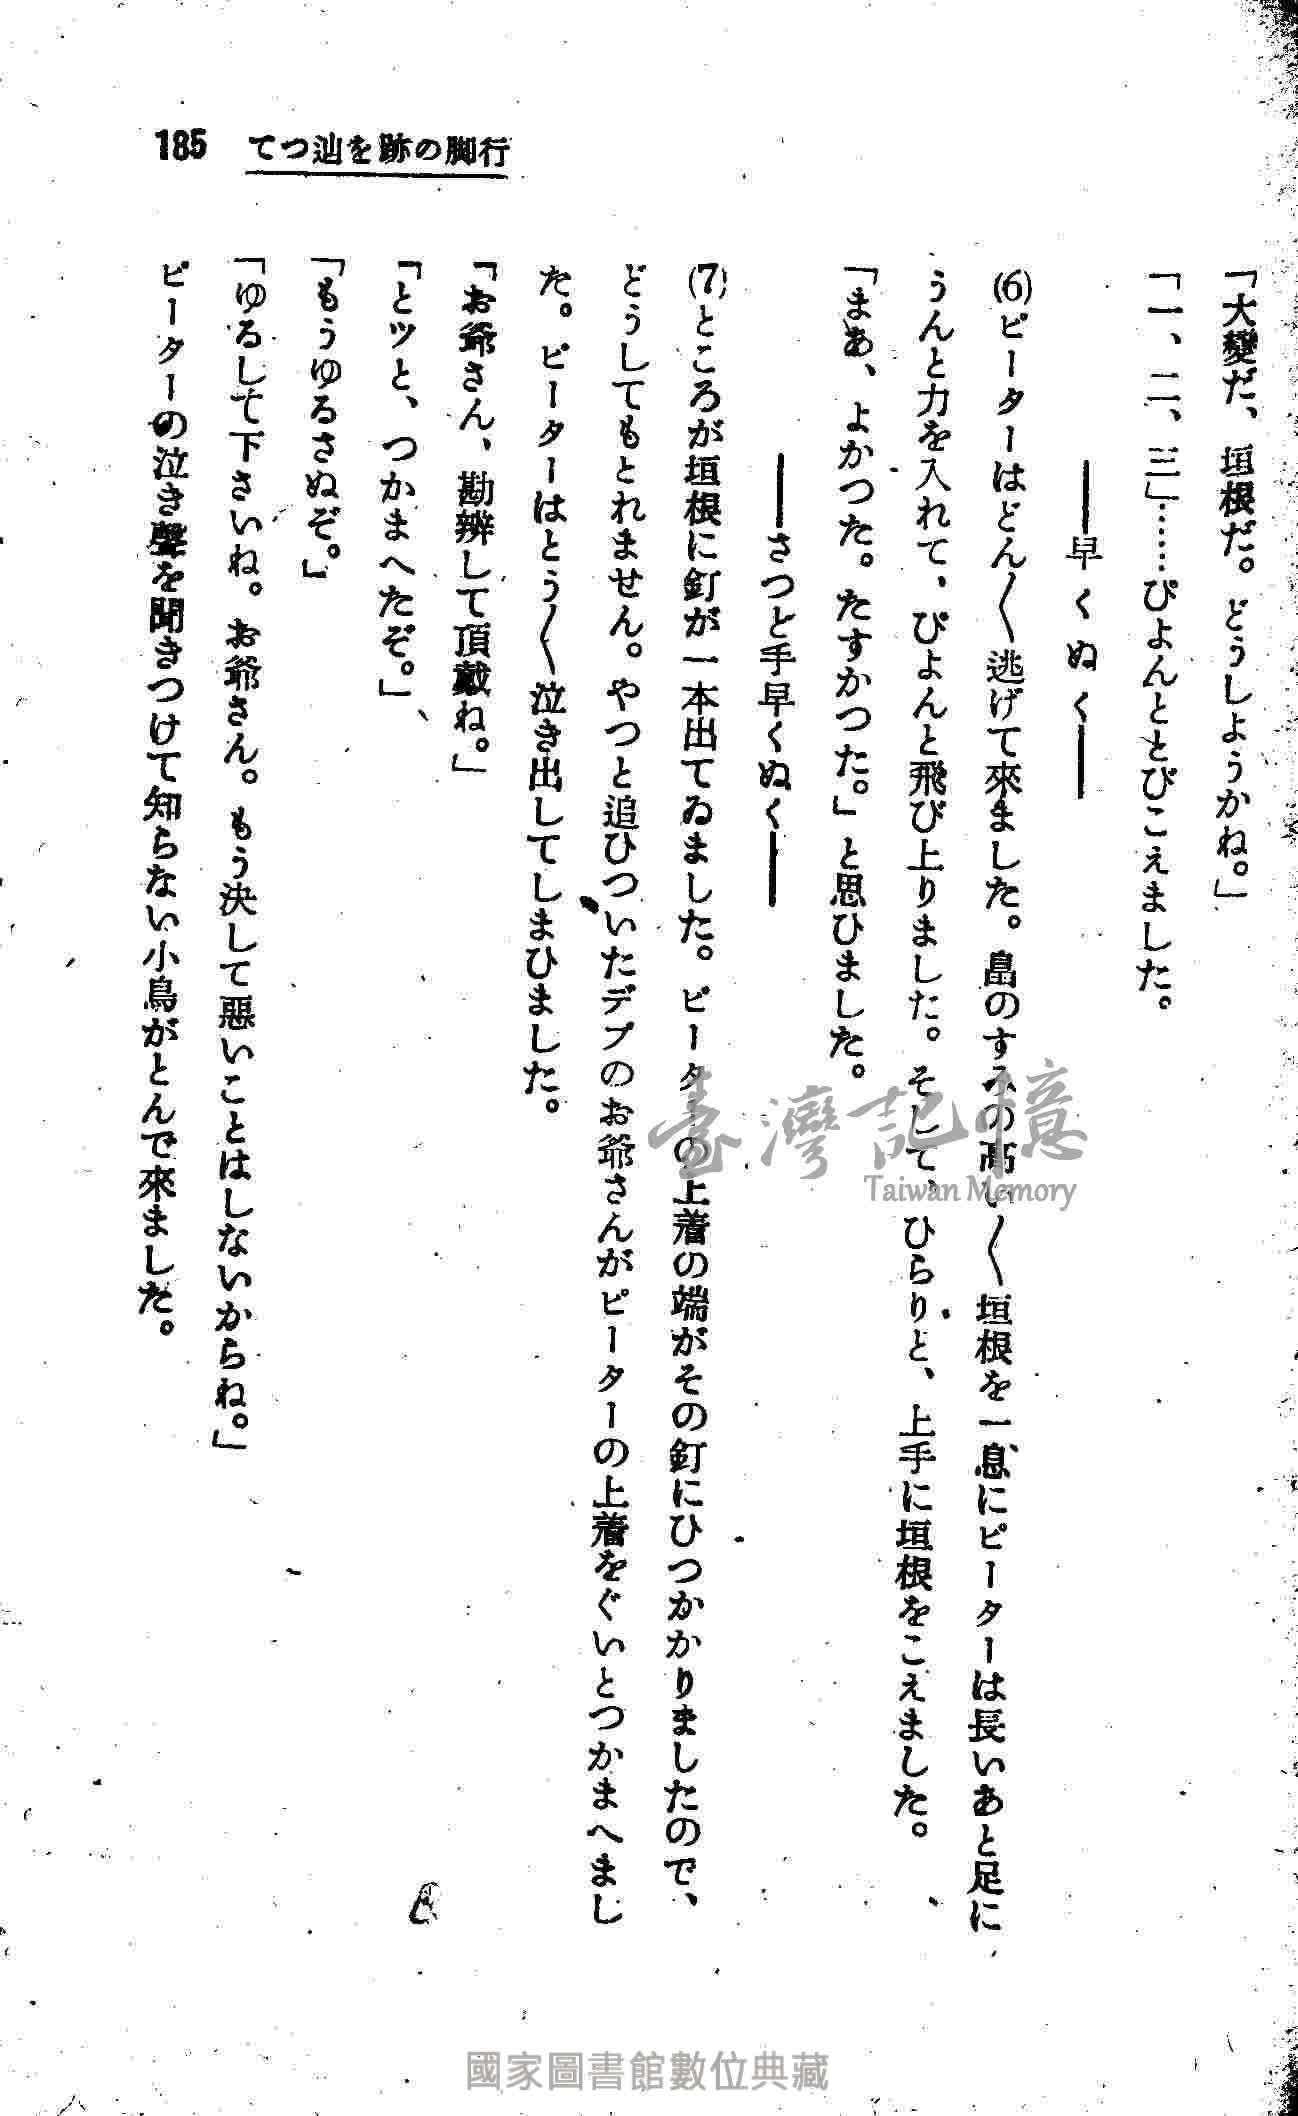 185 てつ辿を跡の脚行
「大變だ、垣根だ。どうしようかね。」
「一、二、三」……ぴよんととびこえました。
――早くぬく――
(6)ピーターはどん〳〵逃げて來ました。畠のすみの高い〳〵垣根を一息にピーターは長いあと足に
うんと力を入れて、ぴよんと飛び上りました。そして、ひらりと、上手に垣根をこえました。
「まあ、よかつた。たすかつた。」と思ひました。
――さつと手早くぬく――
(7)ところが垣根に釘が一本出てゐました。ピーターの上着の端がその釘にひつかかりましたので、
どうしてもとれません。やつと追ひついたデブのお爺さんがピーターの上着をぐいとつかまへまし
た。ピーターはとう〳〵泣き出してしまひました。
「お爺さん、勘辨して頂戴ね。」
「とツと、つかまへたぞ。」
「もうゆるさぬぞ。」
「ゆるして下さいね。お爺さん。もう決して惡いことはしないからね。」
ピーターの泣き聲を聞きつけて知らない小鳥がとんで來ました。
臺灣記憶
Taiwan Memory
國家圖書館數位典藏